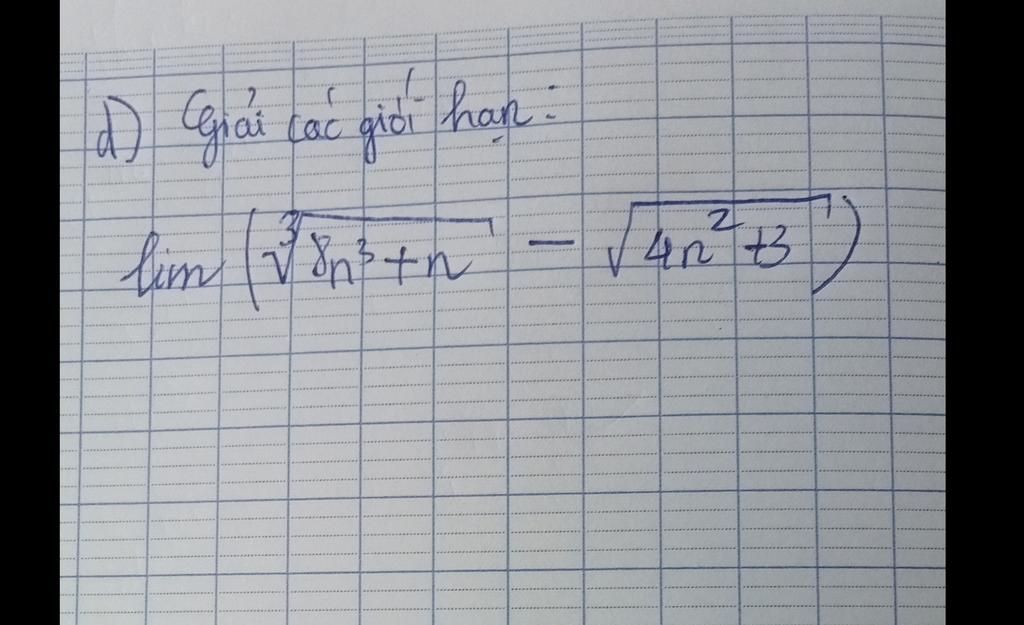 d) Giải các giới hạn:
lim (∛8n³ + n − √4n² + 3)